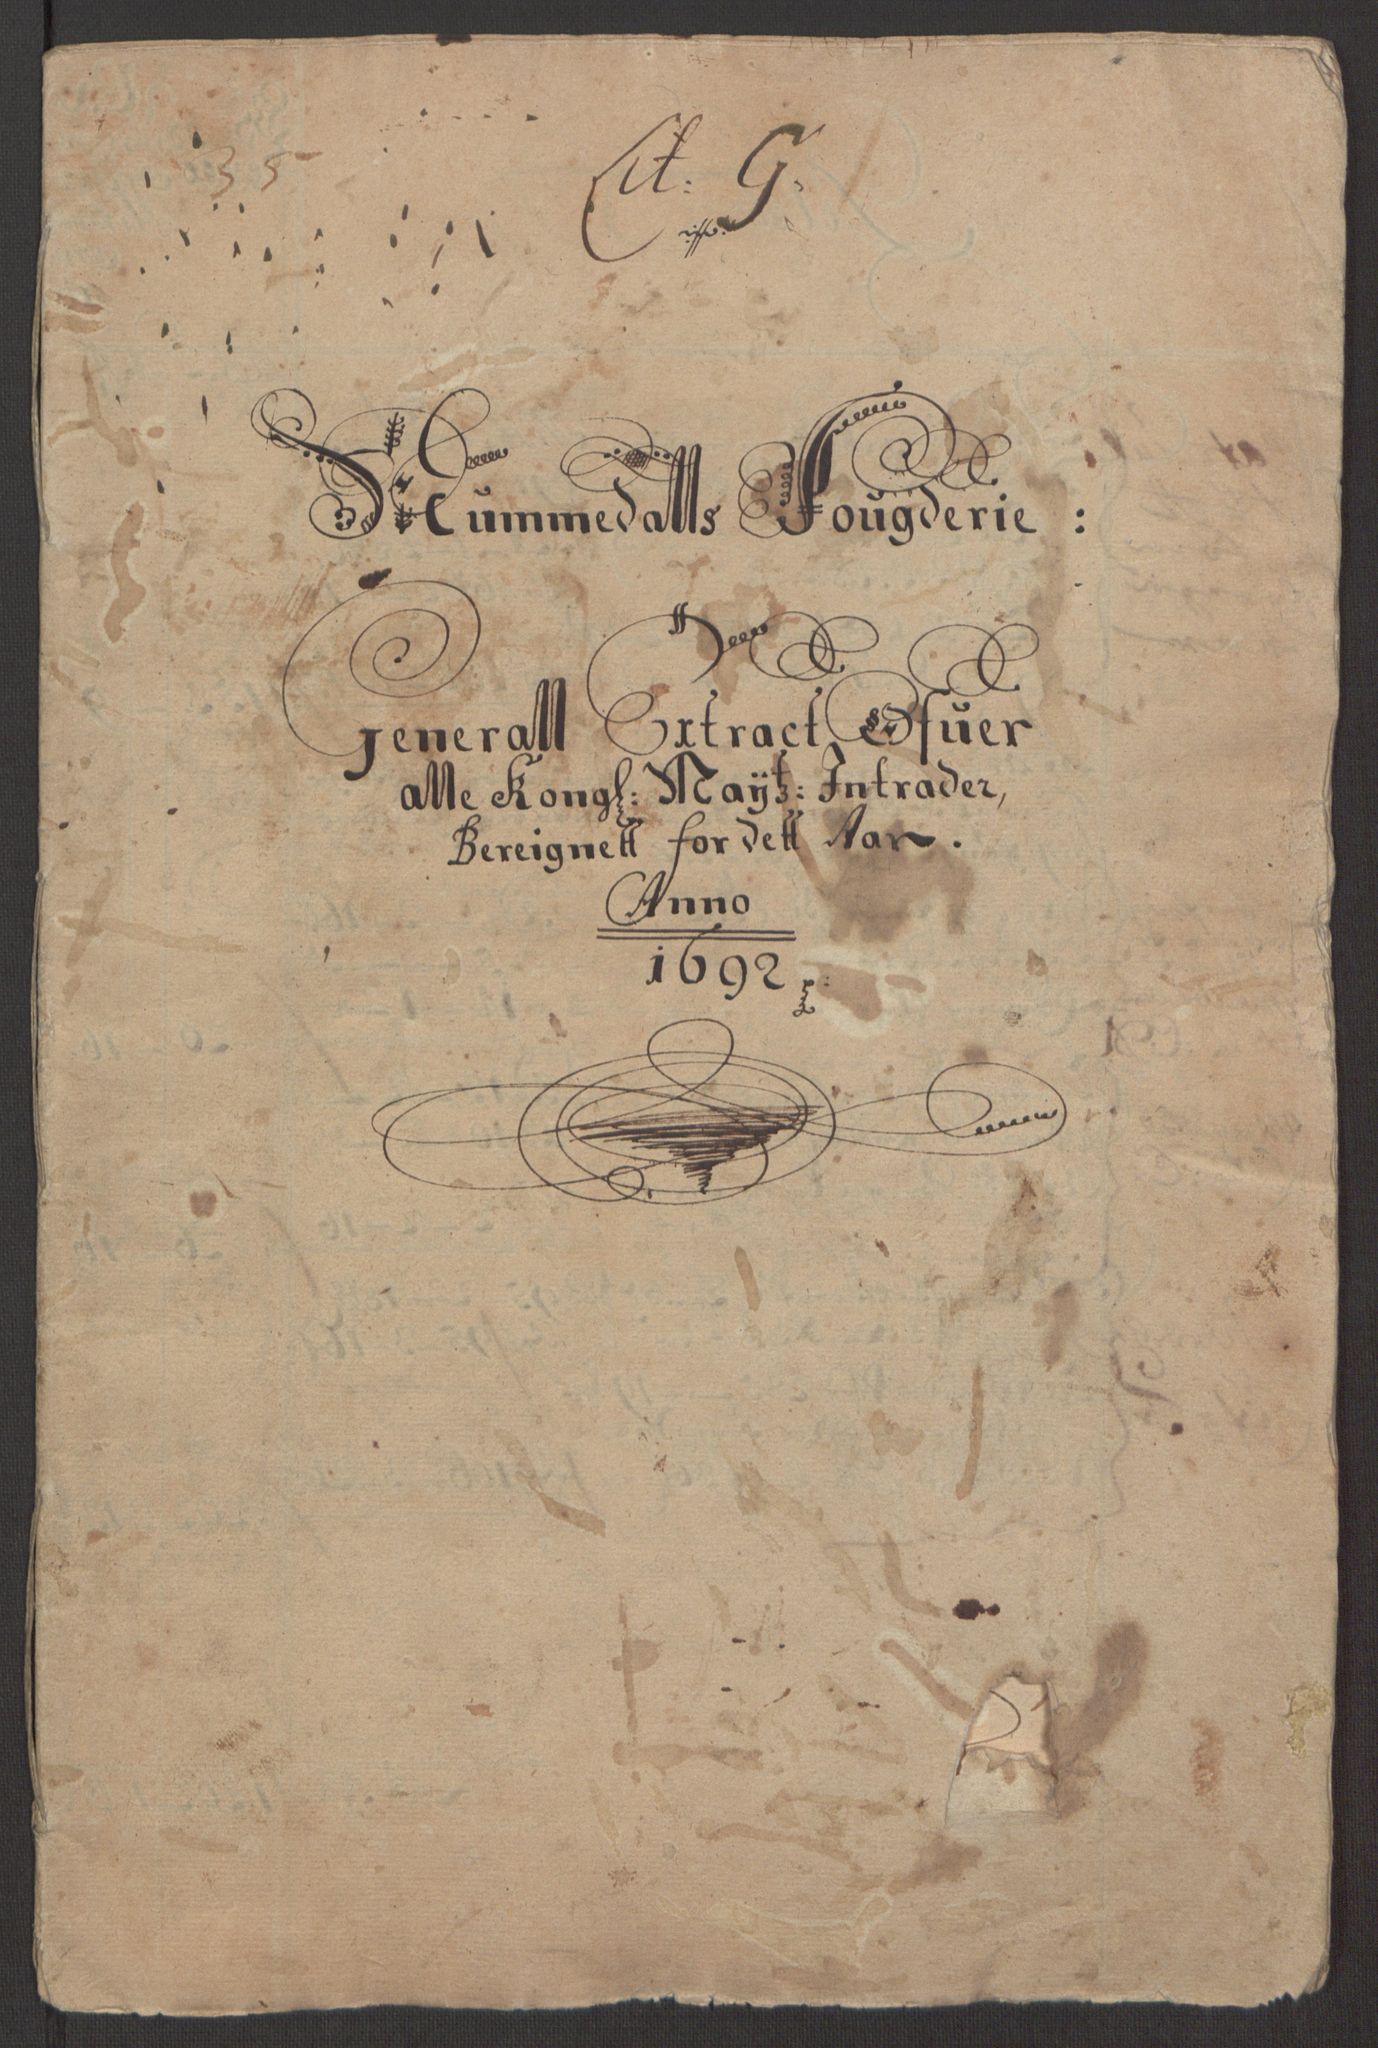 35
Lit: G.
Nummedalls Fougderie:
Generall Extract Ofuer
alle Kongl: Mayts: Intrader,
Bereignett for dett Aar.
Anno
1692